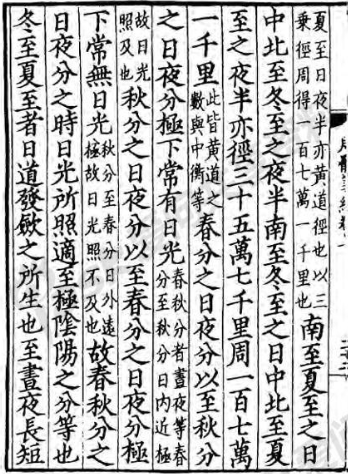 夏至日夜半亦黃道徑也以三乗徑周得一百七萬一千里也南至夏至之日
中北至冬至之夜半南至冬至之日中北至夏
至之夜半亦徑三十五萬七千里周一百七萬
一千里此皆黃道之數與中衡等春分之日夜分以至秋分
之日夜分極下常有日光春秋分者晝夜等春分至秋分日內近極
故日光照及也秋分之日夜分以至春分之日夜分極
下常無日光秋分至春分日外遠極故日光照不及也故春秋分之
日夜分之時日光所照適至極陰陽之分等也
冬至夏至者日道發斂之所生也至晝夜長短